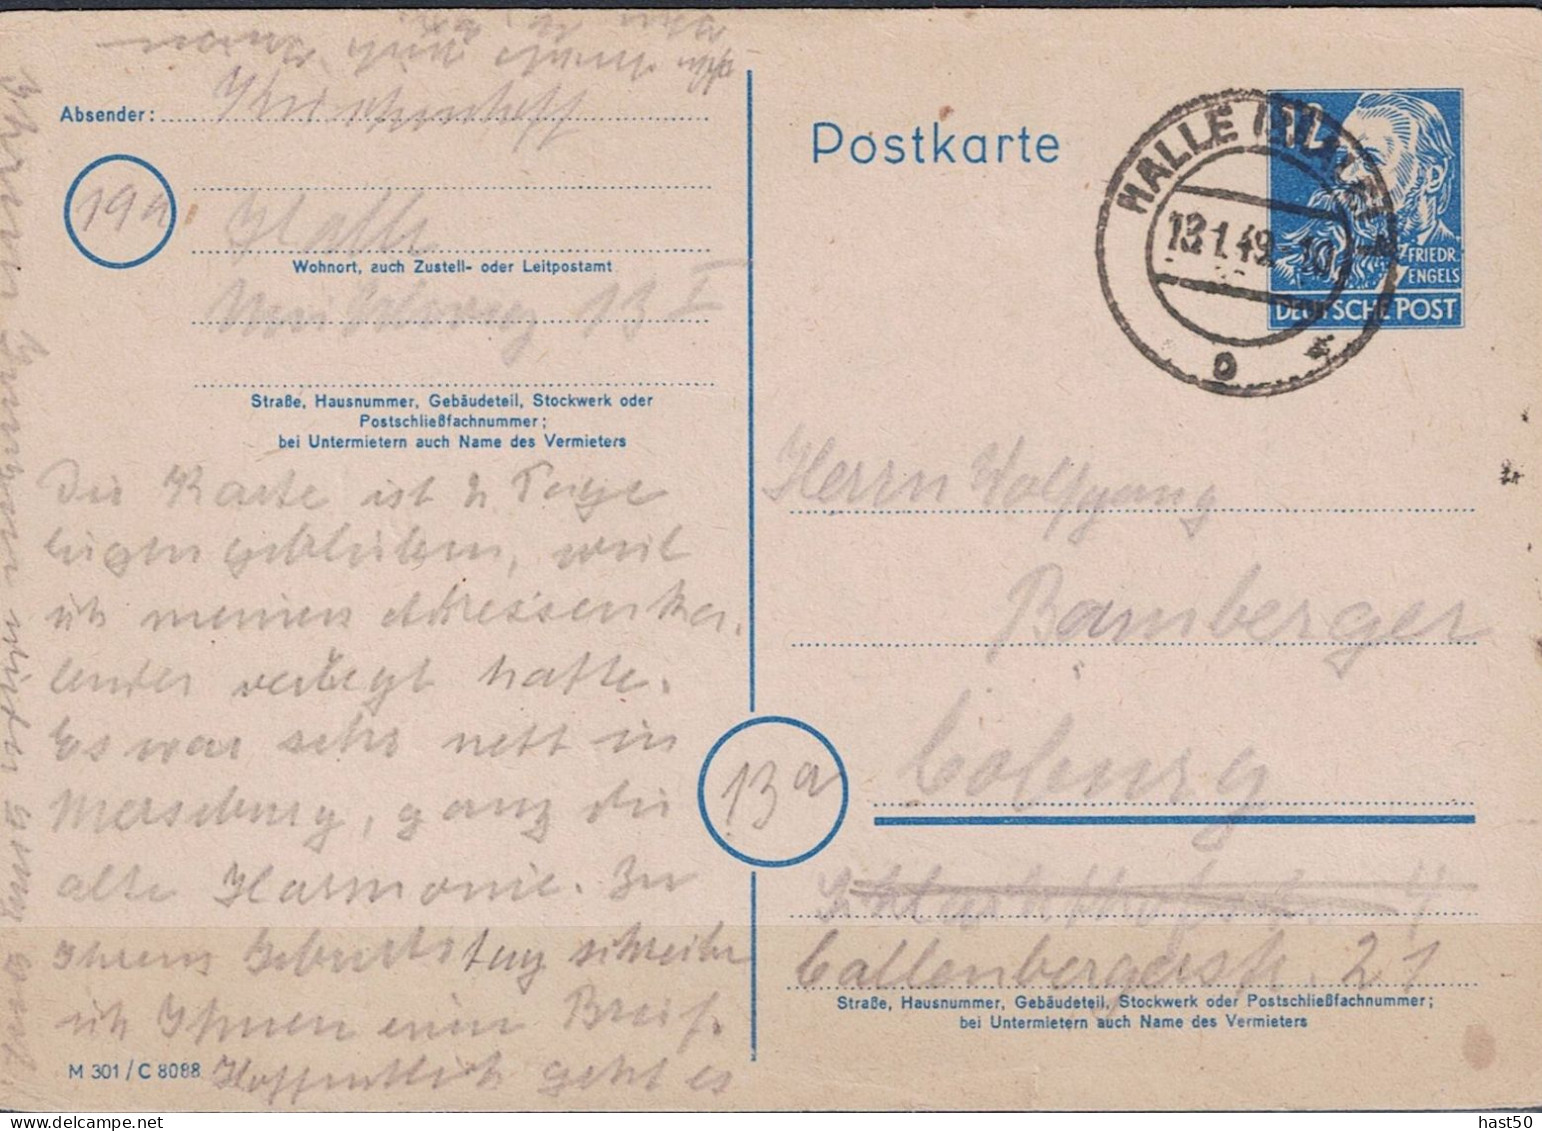 Absender:
19a
Halle
Wohnort, auch Zustell- oder Leitpostamt
13 I
Straße, Hausnummer, Gebäudeteil, Stockwerk oder
Postschließfachnummer;
bei Untermietern auch Name des Vermieters
Die Karte ist 2 Tage
liegen geblieben, weil
ich meinen Adressenka-
lender verlegt hatte.
Es war sehr nett in
Merseburg, ganz die
alte Harmonie. Zu
Ihrem Geburtstag schreibe
ich Ihnen einen Brief.
Hoffentlich geht es
M 301/C 8088
Ihrem Jungen wieder ganz
Postkarte
HALLE (SAALE)
13.1.49.-10
D
FRIEDR.
ENGELS
DEUTSCHE POST
Herrn Wolfgang
Bamberger
13a
Coburg
Schlachthofstr. 4
Callenbergerstr. 21
Straße, Hausnummer, Gebäudeteil, Stockwerk oder Postschließfachnummer;
bei Untermietern auch Name des Vermieters
hast50